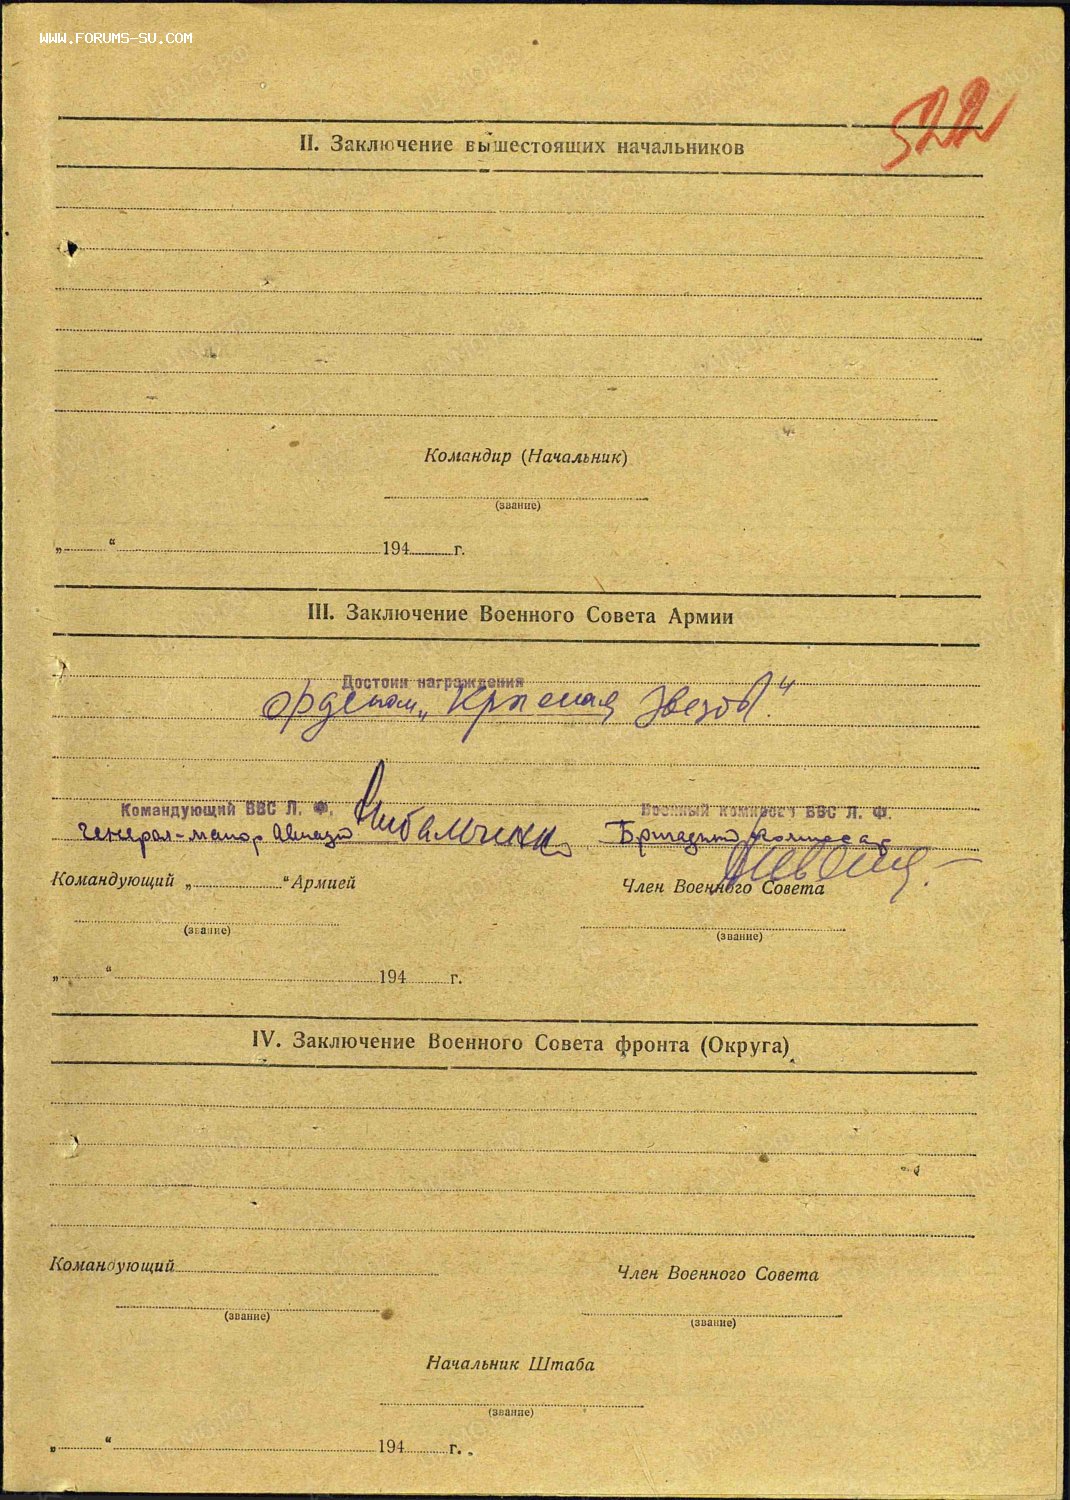 WWW.FORUMS-SU.COM
522
II. Заключение вышестоящих начальников
Командир (Начальник)
(звание)
„ “ 194 г.
III. Заключение Военного Совета Армии
Достоин награждения
орденом „Красная Звезда“.
Командующий ВВС Л. Ф.
Военный комиссар ВВС Л. Ф.
Генерал-майор Авиации
Бригадный Комиссар
Командующий „ “ Армией
Член Военного Совета
(звание)
(звание)
„ “ 194 г.
IV. Заключение Военного Совета фронта (Округа)
Командующий
Член Военного Совета
(звание)
(звание)
Начальник Штаба
(звание)
„ “ 194 г.